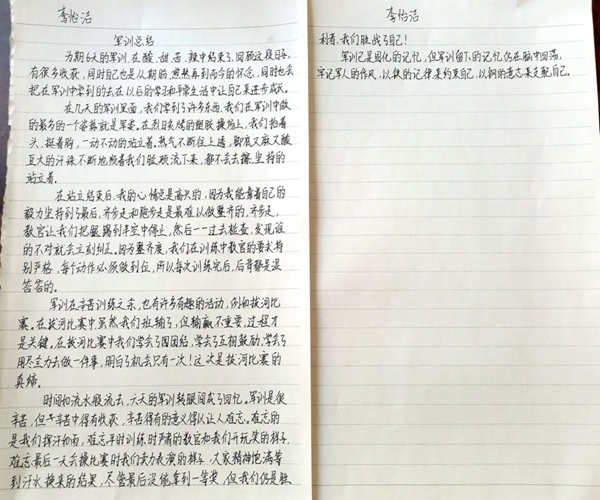 李怡洁
军训总结
为期6天的军训,在酸、甜、苦、辣中结束了,回顾这段日子,
有很多收获,同时自己也是从期盼,煎熬再到而今的怀念,同时也会
把在军训中学到的去在以后的学习和平常生活中让自己来进步成长。
在几天的军训里面,我们学到了许多东西,我们在军训中做
的最多的一个姿势就是军姿。在烈日炎炎的塑胶操场上,我们抬着
头、挺着胸,一动不动的站立着。热气不断往上透,脚底又麻又酸
豆大的汗珠不断地顺着我们脸颊流下来,都不去去擦,坚持的
站立着。
在站立结束后,我的心情总是高兴的,因为我能靠着自己的
毅力坚持到最后,齐步走和跑步走是最难以做整齐的,齐步走,
教官让我们把腿踢到半空中停止,然后一一过去检查,发现谁
的不对就会立刻纠正。因为整齐度,我们在训练中教官的要求特
别严格,每个动作必须做到位,所以每次训练完后,后背都是湿
答答的。
军训在辛苦训练之余,也有许多有趣的活动,例如拔河比
赛。在拔河比赛中虽然我们班输了,但输赢不重要,过程才
是关键,在拔河比赛中我们学会了团团结,学会了互相鼓励,学会了
用尽全力去做一件事,明白了机会只有一次!这次是拔河比赛的
真缔。
时间如流水般流去,六天的军训转眼间成了回忆。军训是很
辛苦,但辛苦中得有收获,辛苦得有的意义得以让人难忘。难忘的
是我们挥汗如雨,难忘平时训练时严肃的教官和我们开玩笑的样子,
难忘最后一天会操比赛时我们卖力表演的样子,大家精神饱满等
到汗水换来的结果,尽管最后没能拿到一等奖,但我们仍是胜
李怡洁
利者,我们胜战了自己!
军训已是固化的记忆,但军训留下的记忆仍在脑中回荡,
牢记军人的作风,以铁的记律来约束自己,以钢的意志来支配自己。